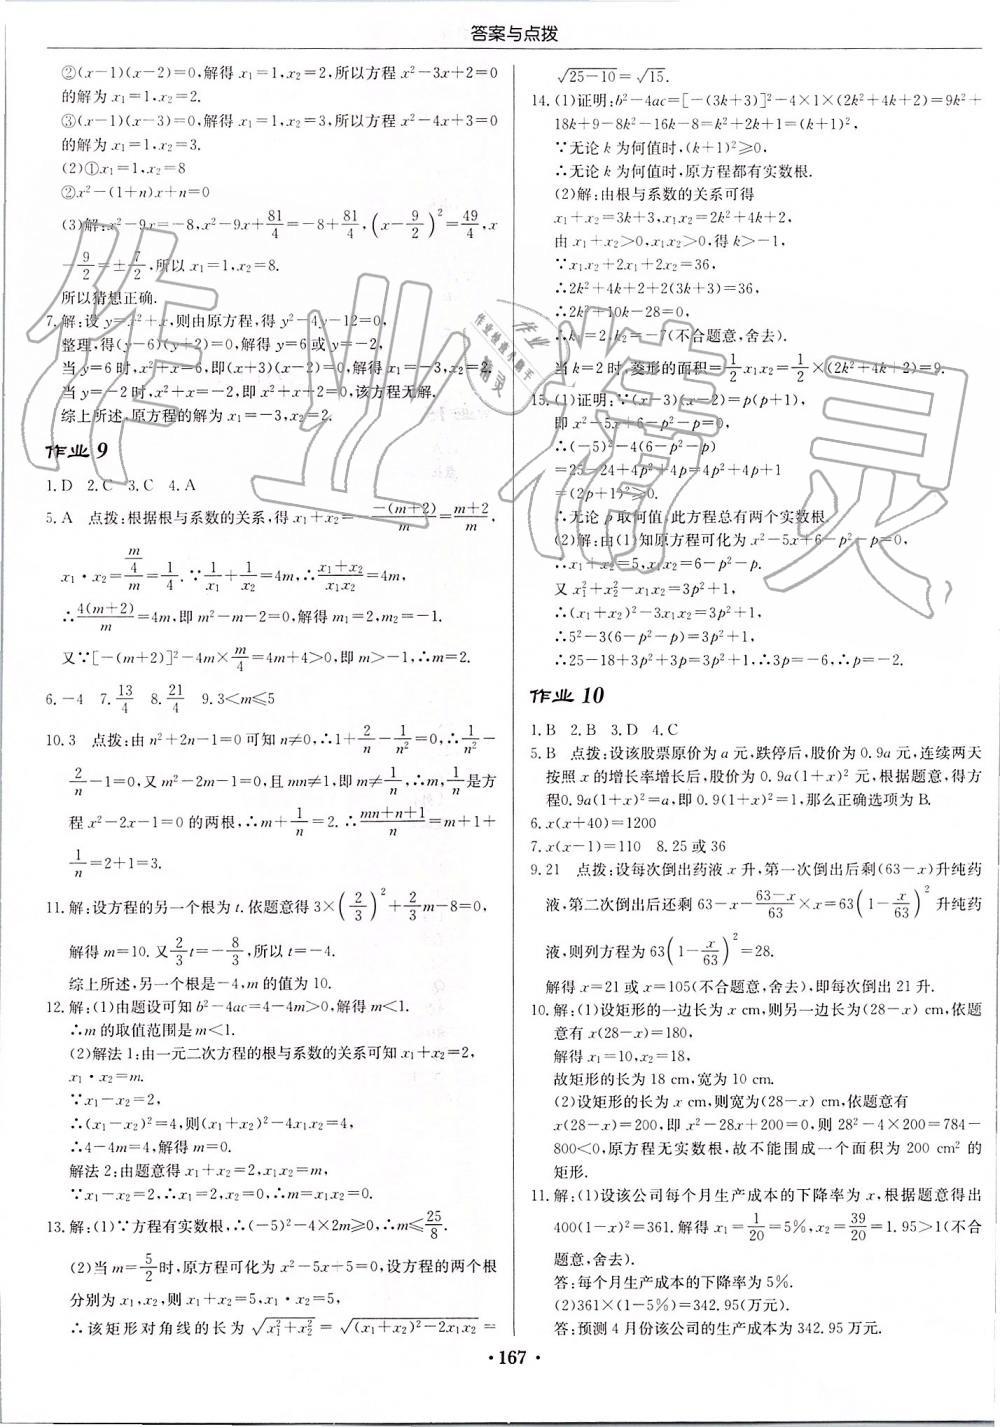 答案与点拨
②(x-1)(x-2)=0,解得 x₁=1,x₂=2,所以方程 x²-3x+2=0
的解为 x₁=1,x₂=2.
③(x-1)(x-3)=0,解得 x₁=1,x₂=3,所以方程 x²-4x+3=0
的解为 x₁=1,x₂=3.
(2)①x₁=1,x₂=8
②x²-(1+n)x+n=0
(3)解:x²-9x=-8,x²-9x+81/4=-8+81/4,(x-9/2)²=49/4,x
-9/2=±7/2,所以 x₁=1,x₂=8.
所以猜想正确.
7.解:设 y=x²+x,则由原方程,得 y²-4y-12=0,
整理,得(y-6)(y+2)=0,解得 y=6或 y=-2,
当 y=6时,x²+x=6,即(x+3)(x-2)=0,解得 x₁=-3,x₂=2,
当 y=-2时,x²+x=-2,即 x²+x+2=0,该方程无解.
综上所述,原方程的解为 x₁=-3,x₂=2.
作业9
1.D 2.C 3.C 4.A
5.A 点拨:根据根与系数的关系,得 x₁+x₂=-(-(m+2))/m=(m+2)/m,
x₁·x₂=(m/4)/m=1/4.∵1/x₁+1/x₂=4m,∴(x₁+x₂)/(x₁x₂)=4m,
∴4(m+2)/m=4m,即 m²-m-2=0,解得 m₁=2,m₂=-1.
又∵[-(m+2)]²-4m×m/4=4m+4>0,即 m>-1,∴m=2.
6.-4 7.13/4 8.21/4 9.3<m≤5
10.3 点拨:由 n²+2n-1=0可知 n≠0,∴1+2/n-1/n²=0,∴1/n²-
2/n-1=0,又 m²-2m-1=0,且 mn≠1,即 m≠1/n,∴m,1/n是方
程 x²-2x-1=0 的两根,∴m+1/n=2.∴(mn+n+1)/n=m+1+
1/n=2+1=3.
11.解:设方程的另一个根为 t.依题意得 3×(2/3)²+2/3m-8=0,
解得 m=10.又2/3t=-8/3,所以 t=-4.
综上所述,另一个根是-4,m 的值为 10.
12.解:(1)由题设可知 b²-4ac=4-4m>0,解得 m<1.
∴m的取值范围是 m<1.
(2)解法1:由一元二次方程的根与系数的关系可知 x₁+x₂=2,
x₁·x₂=m.
∵x₁-x₂=2,
∴(x₁-x₂)²=4,则(x₁+x₂)²-4x₁x₂=4,
∴4-4m=4,解得 m=0.
解法2:由题意得 x₁+x₂=2,x₁x₂=m,
∵x₁-x₂=2,∴x₁=2,x₂=0,∴m=x₁x₂=0.
13.解:(1)∵方程有实数根,∴(-5)²-4×2m≥0,∴m≤25/8.
(2)当 m=5/2时,原方程可化为 x²-5x+5=0,设方程的两个根
分别为 x₁,x₂,则 x₁+x₂=5,x₁·x₂=5,
∴该矩形对角线的长为 √(x₁²+x₂²)=√((x₁+x₂)²-2x₁x₂)=
√(25-10)=√15.
14.(1)证明:b²-4ac=[-(3k+3)]²-4×1×(2k²+4k+2)=9k²+
18k+9-8k²-16k-8=k²+2k+1=(k+1)²,
∵无论 k 为何值时,(k+1)²≥0.
∴无论 k 为何值时,原方程都有实数根.
(2)解:由根与系数的关系可得
x₁+x₂=3k+3,x₁x₂=2k²+4k+2,
由 x₁+x₂>0,x₁x₂>0,得 k>-1,
∵x₁x₂+2x₁+2x₂=36,
∴2k²+4k+2+2(3k+3)=36,
∴2k²+10k-28=0,
∴k₁=2,k₂=-7(不合题意,舍去).
当 k=2时,菱形的面积=1/2x₁x₂=1/2(2k²+4k+2)=9.
15.(1)证明:∵(x-3)(x-2)=p(p+1),
即 x²-5x+6-p²-p=0,
∴(-5)²-4(6-p²-p)
=25-24+4p²+4p=4p²+4p+1
=(2p+1)²≥0.
∴无论 p 取何值,此方程总有两个实数根.
(2)解:由(1)知原方程可化为 x²-5x+6-p²-p=0,
∴x₁+x₂=5,x₁x₂=6-p²-p.
又 x₁²+x₂²-x₁x₂=3p²+1,
∴(x₁+x₂)²-3x₁x₂=3p²+1,
∴5²-3(6-p²-p)=3p²+1,
∴25-18+3p²+3p=3p²+1,∴3p=-6,∴p=-2.
作业10
1.B 2.B 3.D 4.C
5.B 点拨:设该股票原价为 a 元,跌停后,股价为 0.9a元,连续两天
按照 x 的增长率增长后,股价为 0.9a(1+x)² 元,根据题意,得方
程0.9a(1+x)²=a,即 0.9(1+x)²=1,那么正确选项为 B.
6.x(x+40)=1200
7.x(x-1)=110 8.25 或 36
9.21 点拨:设每次倒出药液 x 升,第一次倒出后剩(63-x)升纯药
液,第二次倒出后还剩 63-x-(63-x)/63×x=63(1-x/63)²升纯药
液,则列方程为 63(1-x/63)²=28.
解得 x=21或 x=105(不合题意,舍去),即每次倒出 21 升.
10.解:(1)设矩形的一边长为 x cm,则另一边长为(28-x)cm,依题
意有 x(28-x)=180,
解得 x₁=10,x₂=18,
故矩形的长为 18 cm,宽为 10 cm.
(2)设矩形的长为 x cm,则宽为(28-x) cm,依题意有
x(28-x)=200,即 x²-28x+200=0,则 28²-4×200=784-
800<0,原方程无实数根,故不能围成一个面积为 200 cm² 的
矩形.
11.解:(1)设该公司每个月生产成本的下降率为 x,根据题意得出
400(1-x)²=361.解得 x₁=1/20=5%,x₂=39/20=1.95>1(不合
题意,舍去).
答:每个月生产成本的下降率为 5%.
(2)361×(1-5%)=342.95(万元).
答:预测 4 月份该公司的生产成本为 342.95 万元.
·167·
作业精灵
作业
精灵
作业检查小助手